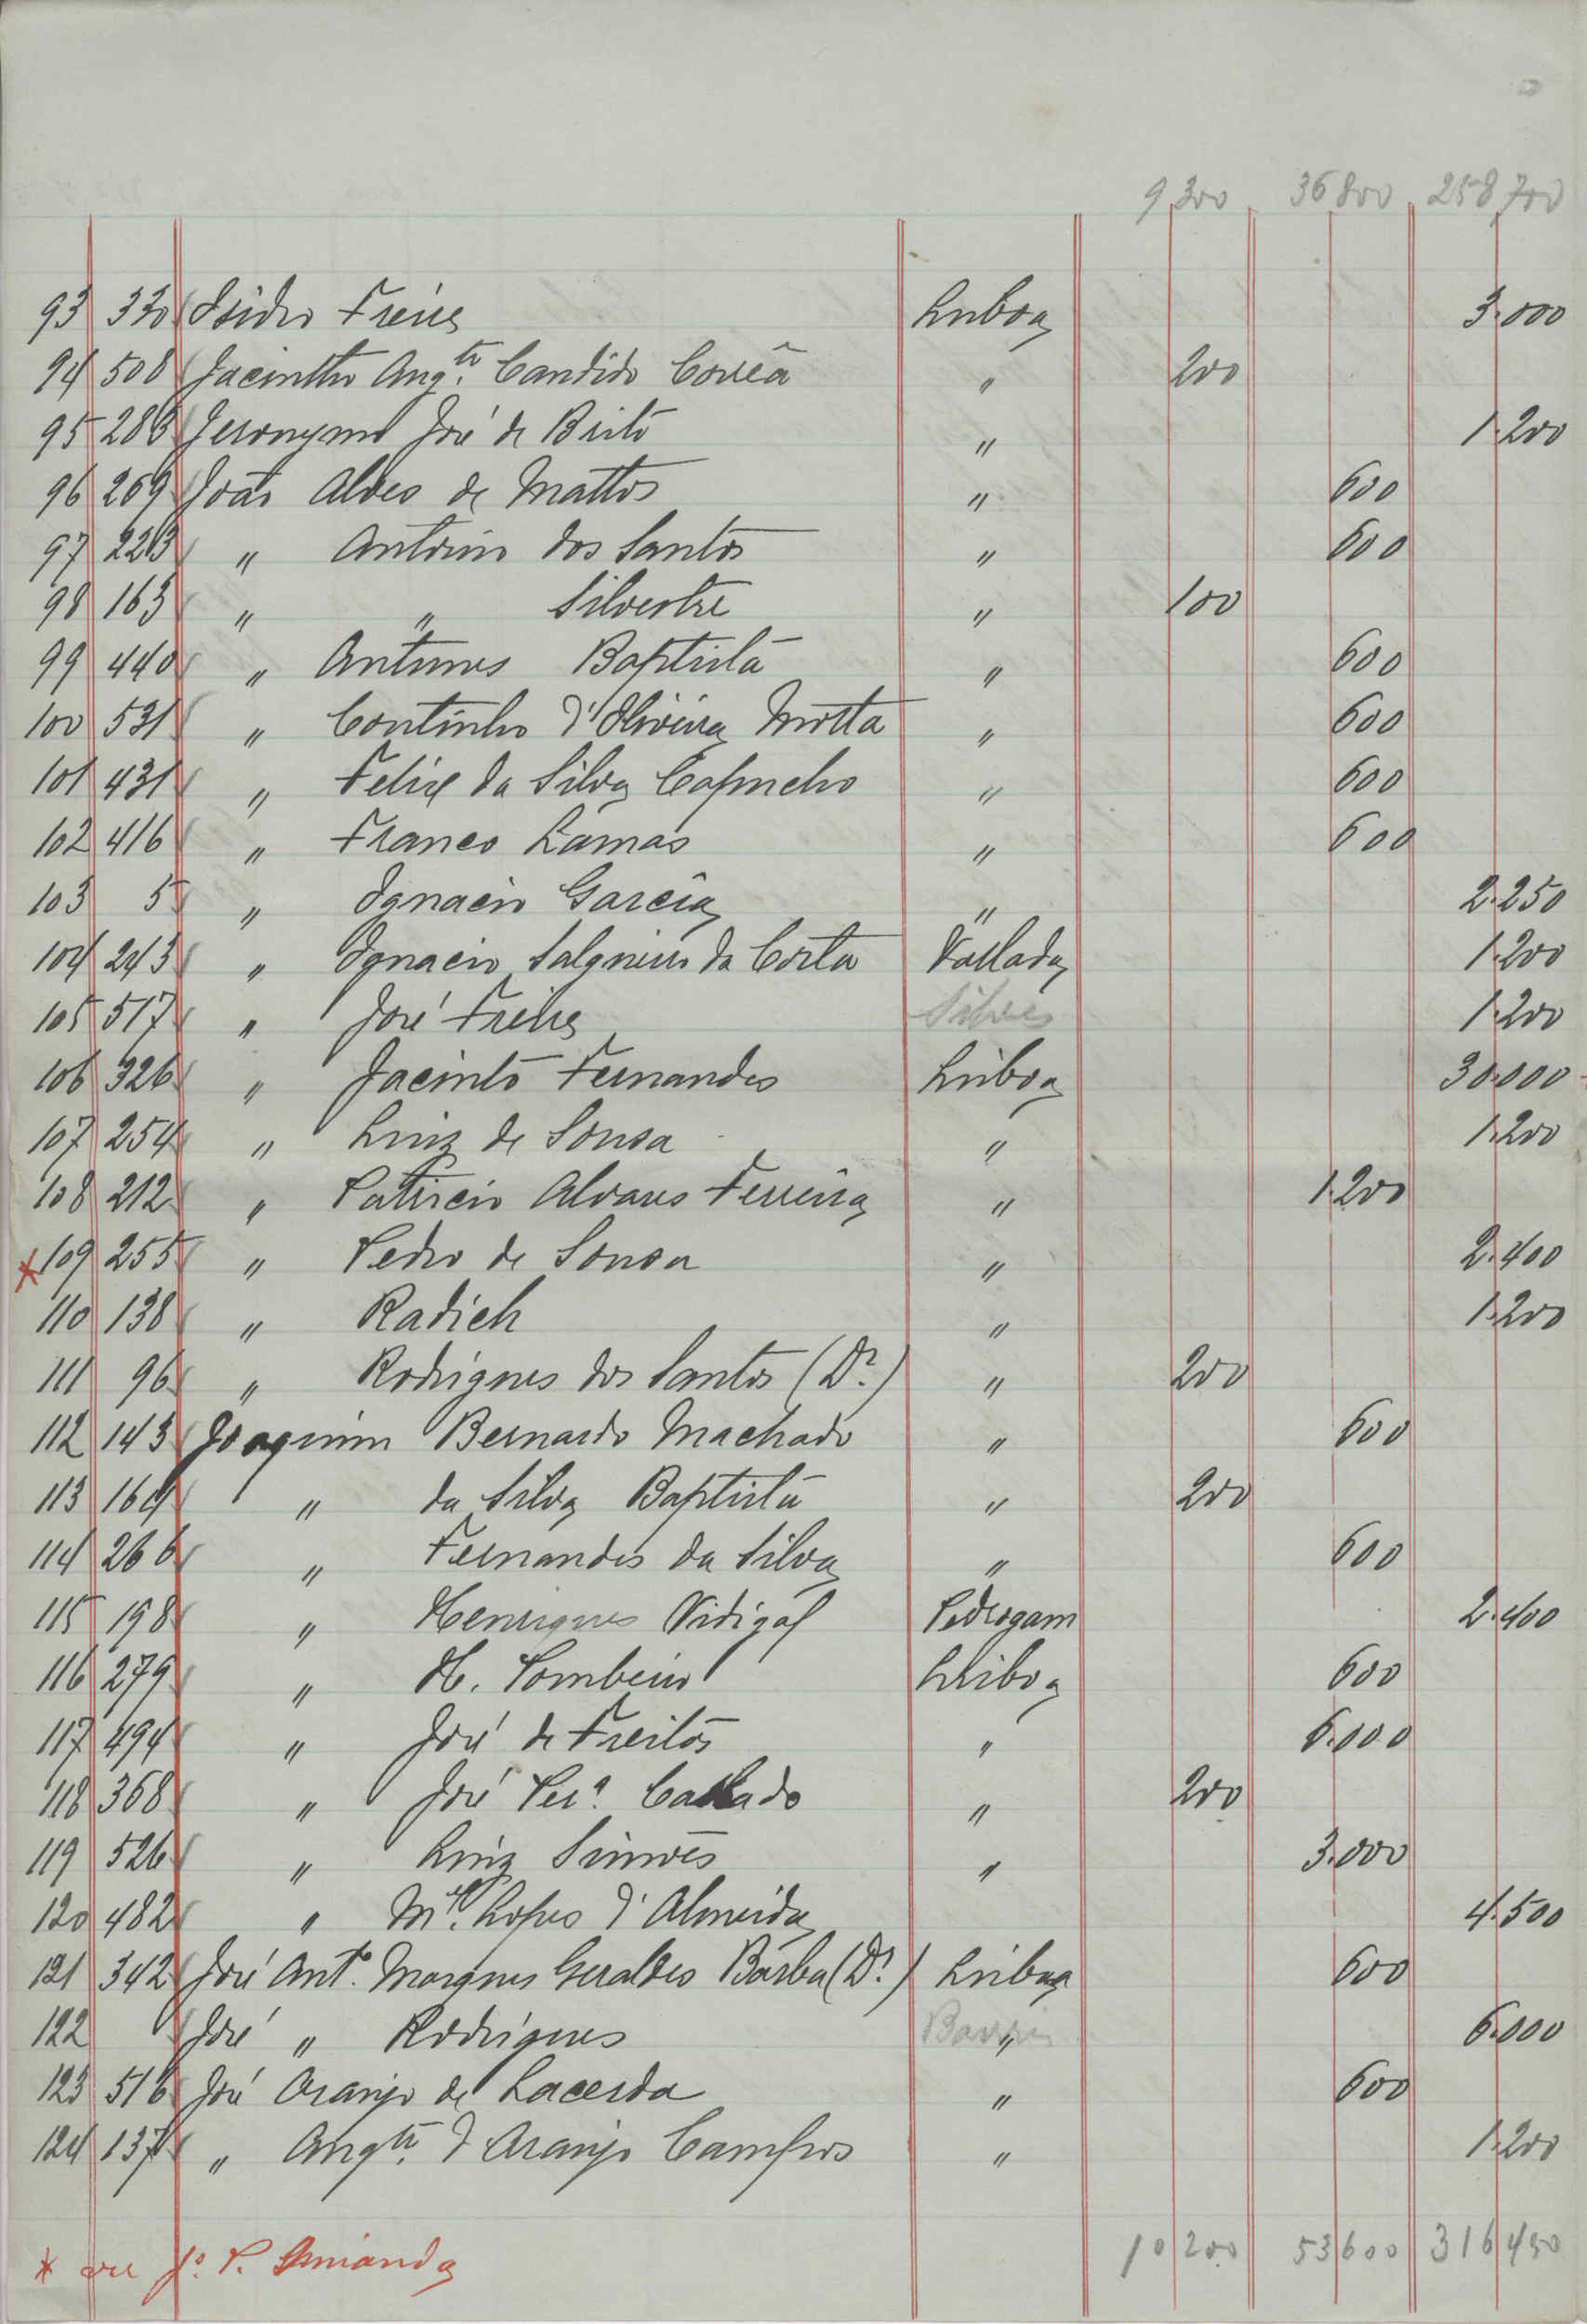 9 300 36 800 258 700
93 330 Isidro Freire Lisboa 3.000
94 508 Jacintho Aug.to Candido Corrêa " 200
95 283 Jeronymo José de Brito " 1.200
96 269 João Alves de Mattos " 600
97 223 " Antonio dos Santos " 600
98 163 " " Silvestre " 100
99 440 " Antunes Baptista " 600
100 531 " Coutinho d'Oliveira Motta " 600
101 431 " Felix da Silva Capucho " 600
102 416 " Franco Lamas " 600
103 5 " Ignacio Garcia " 2.250
104 243 " Ignacio Salgueiro da Costa Vallada 1.200
105 517 " José Freire Silves 1.200
106 326 " Jacinto Fernandes Lisboa 30.000
107 254 " Luiz de Sousa " 1.200
108 212 " Patricio Alvares Ferreira " 1.200
* 109 255 " Pedro de Sousa " 2.400
110 138 " Radich " 1.200
111 96 " Rodrigues dos Santos (Dr.) " 200
112 143 Joaquim Bernardo Machado " 600
113 164 " da Silva Baptista " 200
114 266 " Fernandes da Silva " 600
115 198 " Henriques Vidigal Pedrogam 2.400
116 279 " H. Pombeiro Lisboa 600
117 494 " José de Freitas " 6.000
118 368 " José Per.a Callado " 200
119 526 " Luiz Simões " 3.000
120 482 " M.el Lopes d'Almeida 4.500
121 342 José Ant.o Marques Geraldes Barba (Dr.) Lisboa 600
122 José " Rodrigues " 6.000
123 516 José Araujo de Lacerda " 600
124 137 " Aug.to d'Araujo Campos " 1.200
10 200 53 600 316 450
* ou J.o P. Amianda